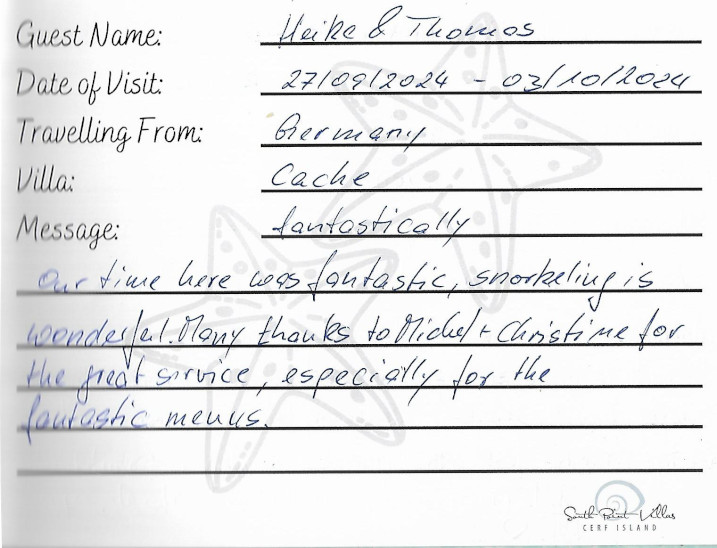 Guest Name: Heike & Thomas
Date of Visit: 27/09/2024 - 03/10/2024
Travelling From: Germany
Villa: Cache
Message: fantastically
Our time here was fantastic, snorkeling is
wonderful. Many thanks to Michel + Christime for
the great service, especially for the
fantastic menus.
South Point Villas
CERF ISLAND